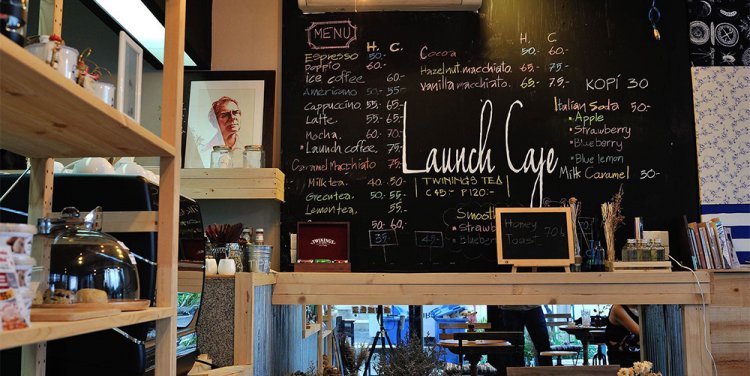 MENU
H. C.
Espresso 50.-
Doppio 60.-
Ice coffee 60.-
Americano 50.- 55.-
Cappuccino 55.- 65.-
Latte. 55.- 65.-
Mocha. 60.- 70.-
Launch coffee. 75.-
Caramel Macchiato 65.-
Milk tea. 40.- 50.-
Greentea 50.- 55.-
Lemontea. 55.-
50.- 60.-
H. C.
Cocoa 50.- 60.-
Hazelnut macchiato. 65.- 75.-
Vanilla macchiato. 65.- 75.-
KOPI 30
Italian Soda 50.-
Apple
Strawberry
Blueberry
Blue lemon
Milk Caramel 50.-
Launch Cafe
TWININGS TEA
C 45.- P 120.-
35.-
45.-
Honey
Toast 70.-
TWININGS